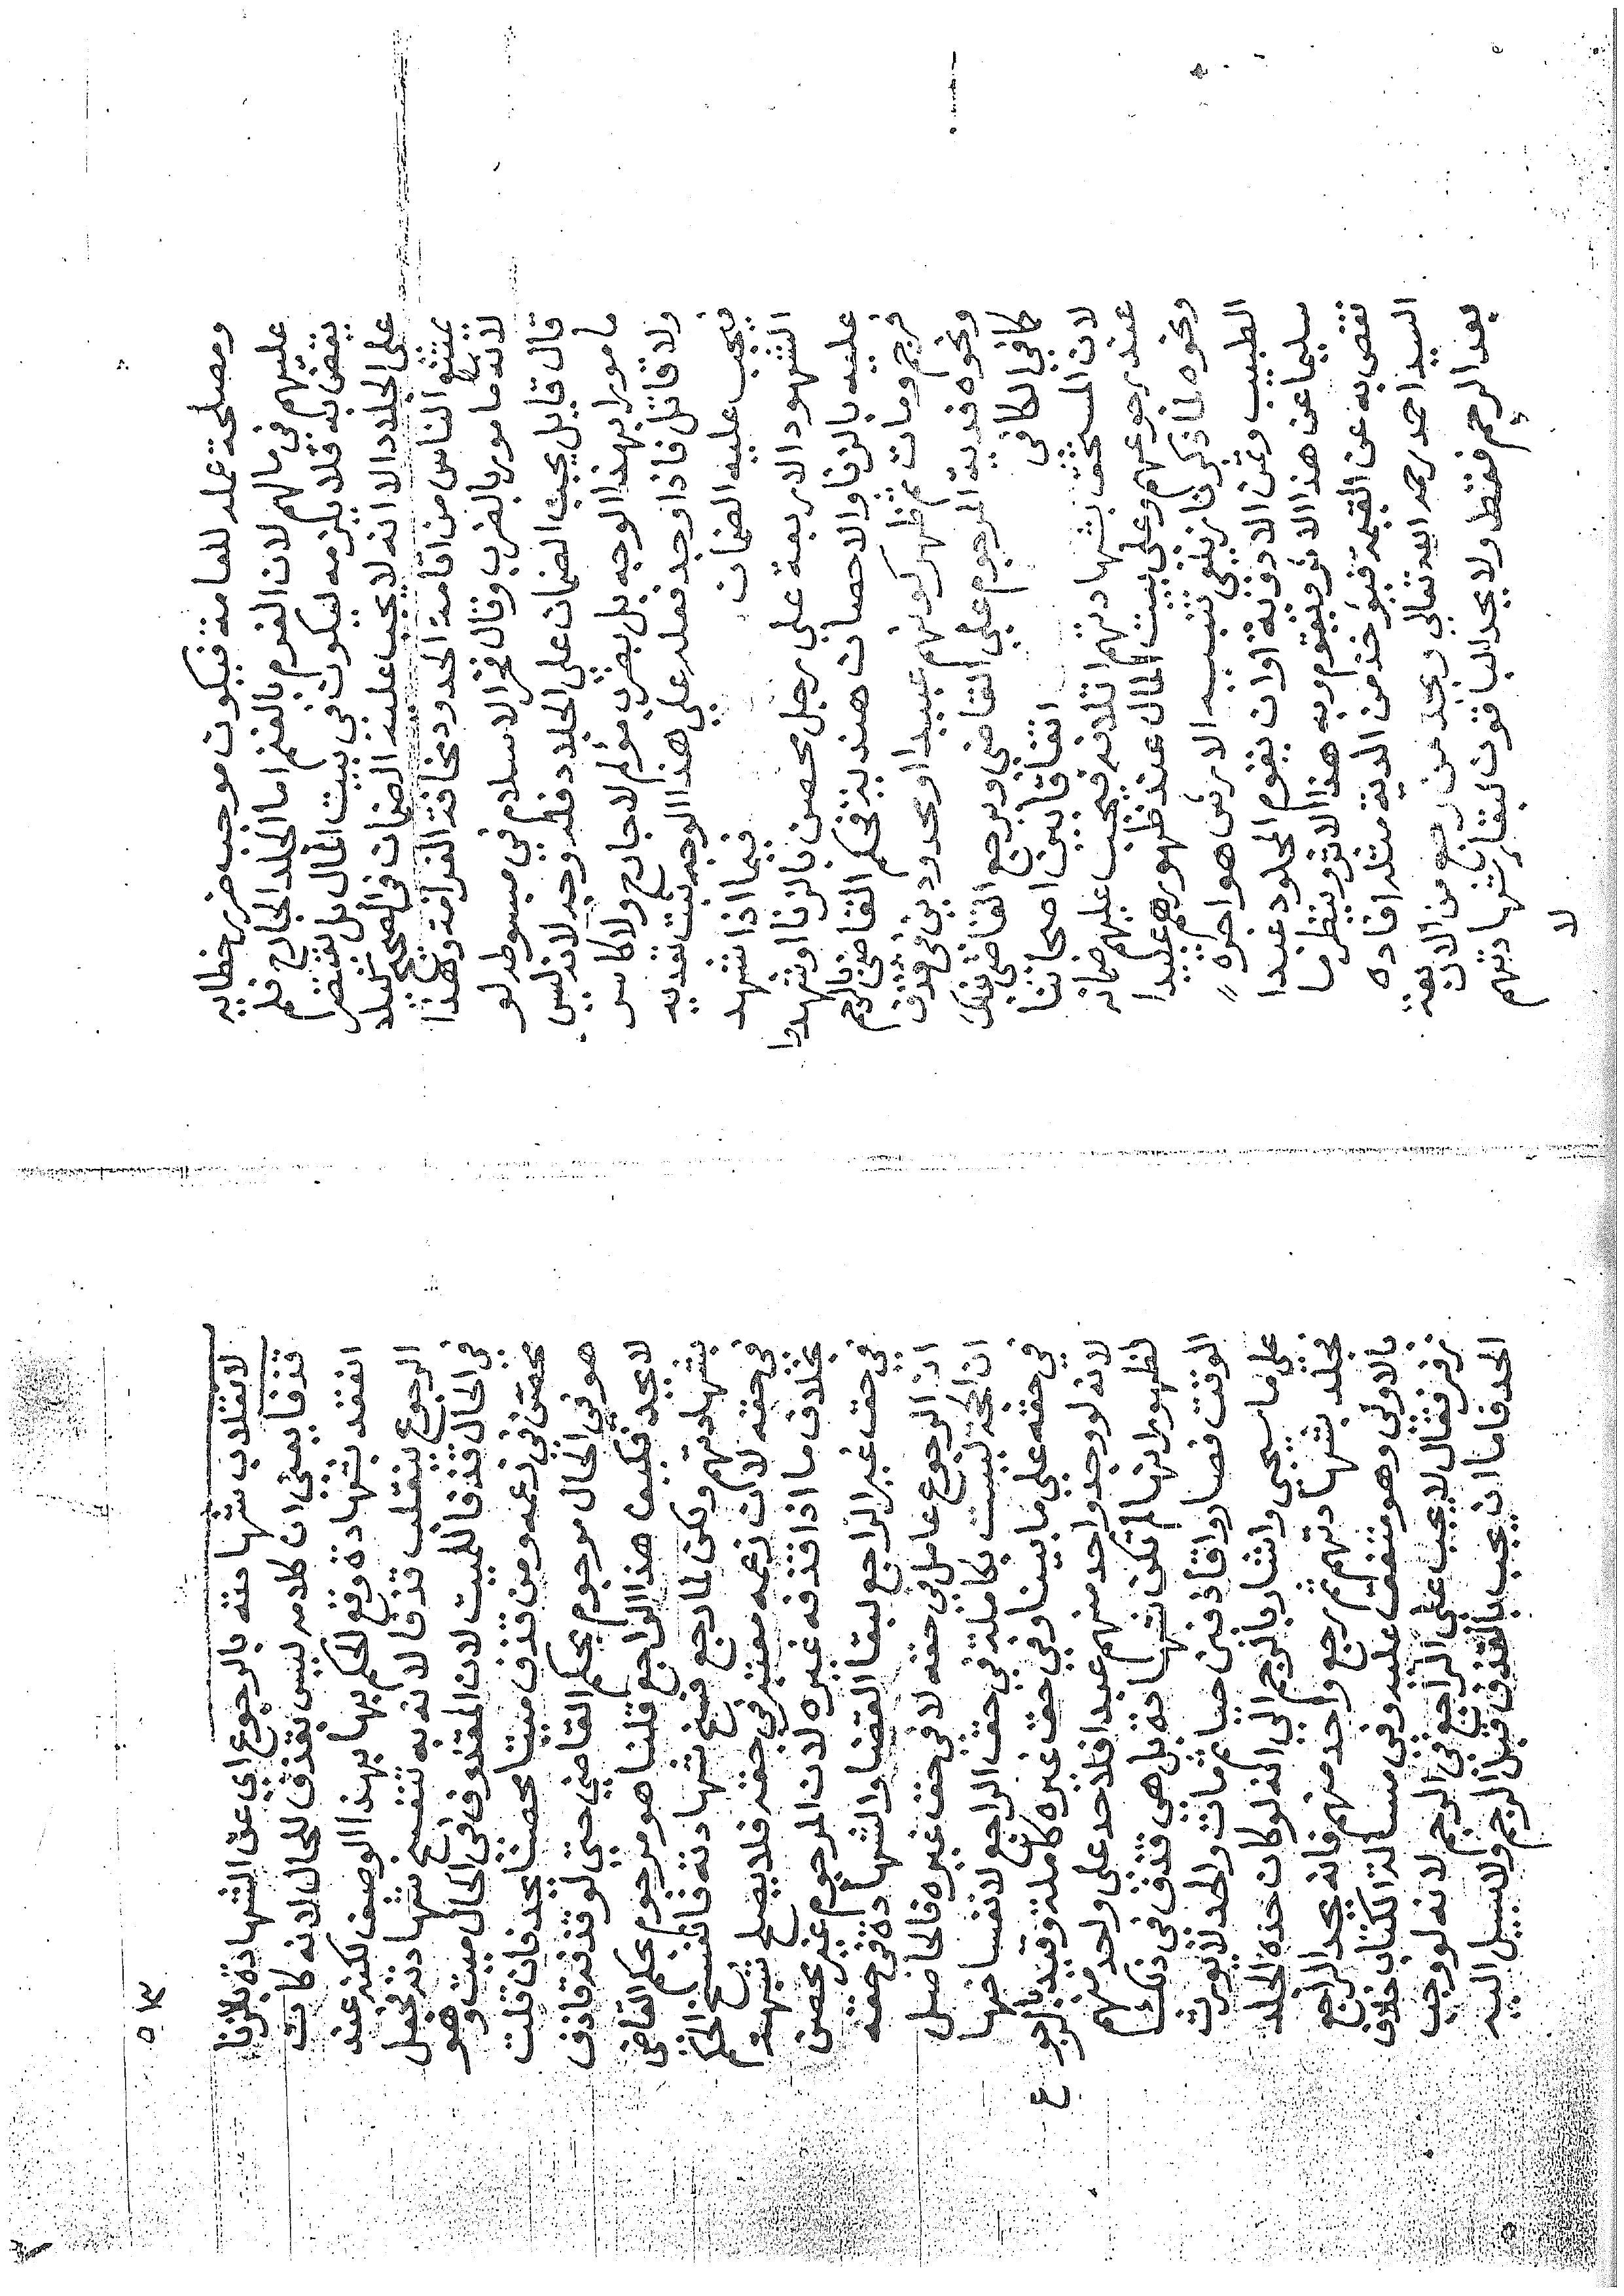 ومصلحة عمله للعامة فيكون موجب ضرر خطايه
عليهم في مالهم لان الغرم بالغنم اما الجلد الجارح فلم
يفض به فلا يلزمه ليكون في بيت المال بل يقتصر
على الجلاد الا انه لا يجب عليه الضمان في الصحيح كيلا
يمتنع الناس من اقامة الحدود مخافة الغرامة وهذا
لانه مامور بالضرب وقال فخر الاسلام في مبسوطه لو
قال قايل يجب الضمان على الجلاد فله وجه لانه ليس
مامورا بهذا الوجه بل بضرب مؤلم لا جارح ولا كاسر
ولا قاتل فاذا وجد فعله على هذا الوجه بت تعديه
فيجب عليه الضمان فيما اذا شهد
الشهود الاربعة على رجل محصن بالزنا او شهدوا
عليه بالزنا والاحصان هند بة فحكم القاضي بالرجم
فرجم ومات ثم ظهر كونهم عبيدا او محدودين في قذف
ونحوه فدية المرجوم على القاضي ويرجع القاضي بذلك
كافي الكافي اتفاقا بين اصحابنا
لان المستحق بشهادتهم اتلافه فيجب عليهم ضمانه
عند رجوعهم وعلى بيت المال عند ظهورهم عبيدا
ونحوه لما ذكرنا زيلعي تنبيه الارش هو اجرة
الطبيب وثمن الادوية او ان يقوم المجلود عبدا
سليما عن هذا الاثر ويقوم وبه هذا الاثر وينظر ما
نقص به عن القيمة فيؤخذ من الدية مثله افاده
السيد احمد رحمه الله تعالى ويحد من رجع من الاربعة
بعد الرجم فقط ولا يحد الباقون لبقا شهادتهم
لا
٥١٤
لانقلاب شهادته بالرجوع اي عن الشهادة بالزنا
قذفا يعني ان كلامه ليس بقذف للحال لانه كان
انعقد بشهادة وقع الحكم بها بهذا الوصف لكنه عند
الرجوع ينقلب قذفا لانه به تنفسخ شهادته فجعل
في الحال قذفا للميت لان المقذوف في الحال ميت وهو
محصن في زعمه ومن قذف ميتا محصنا يحد فان قلت
هو في الحال مرجوم بحكم القاضي حتى لو قذفه قاذف
لا يحد فكيف هذا الراجع قلنا هو مرجوم بحكم القاضي
بشهادتهم ولكن لما رجع فسخ شهادته فانفسخ الحكم
في حقه لان زعمه معتبر في حقه فلا يصلح شبهة
بخلاف ما اذا قذفه غيره لان المرجوم غير محصن
في حق غير الراجع لبقا القضا والشهادة في حقه
اذ الرجوع عامل في حقه لا في حق غيره فالحاصل
ان الحجة ليست بكاملة في حق الراجع لانفساخها
في حقه على ما بينا وفي حق غيره كاملة وقيد بالرجوع
لانه لو وجد واحد منهم عبدا فلا حد على واحد منهم
لظهور انها لم تكن شهادة بل هي قذف في ذلك
الوقت فصار قاذفين حيا ثم مات والحد لا يورث
على ما سيجي واشار بالرجم الى انه لو كان حده الجلد
فجلد بشهادتهم ثم رجع واحد منهم فانه يحد الراجع
بالاولى وهو متفق عليه وفي مسالة الكتاب خلاف
زفر فقال لا يجب على الراجع في الرجم لانه لو وجب
الحد فاما ان يجب بالقذف قبل الرجم ولا سبيل اليه